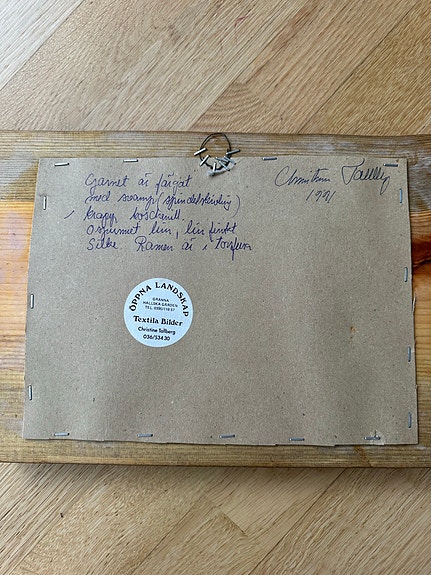 Garnet är färgat
med svamp (spindelskivling)
krapp, koschenill.
Ospunnet lin, lin
Silke. Ramen är i torrfura
Christine Tallberg
1991
ÖPPNA LANDSKAP
GRÄNNA
HALLSKA GÅRDEN
TEL. 0390/118 57
Textila Bilder
Christine Tallberg
036/534 30